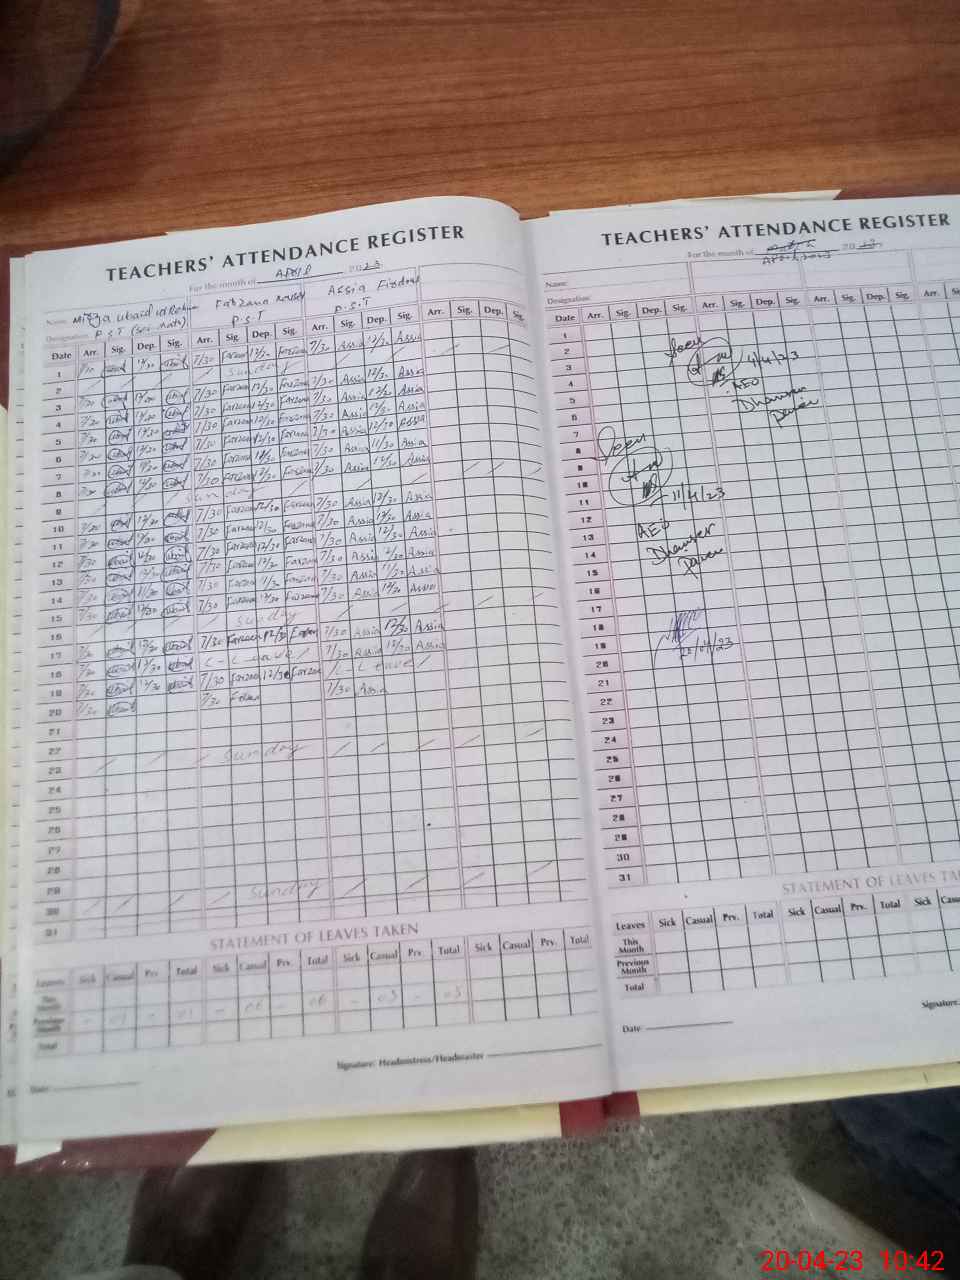 TEACHERS' ATTENDANCE REGISTER
For the month of April 2023
Name: Mirza Ubaid ur Rehman Farzana Assia Firdous
Designation: P.S.T (Sci. math) P.S.T P.S.T
Date Arr. Sig. Dep. Sig. Arr. Sig. Dep. Sig. Arr. Sig. Dep. Sig. Arr. Sig. Dep. Sig.
1 7/30 Ubaid 12/30 Ubaid 7/30 Farzana 12/30 Farzana 7/30 Assia 12/30 Assia
2 Sunday
3 7/30 Ubaid 12/30 Ubaid 7/30 Farzana 12/30 Farzana 7/30 Assia 12/30 Assia
4 7/30 Ubaid 12/30 Ubaid 7/30 Farzana 12/30 Farzana 7/30 Assia 12/30 Assia
5 7/30 Ubaid 12/30 Ubaid 7/30 Farzana 12/30 Farzana 7/30 Assia 12/30 Assia
6 7/30 Ubaid 12/30 Ubaid 7/30 Farzana 12/30 Farzana 7/30 Assia 12/30 Assia
7 7/30 Ubaid 7/30 Farzana Farzana 7/30 Assia 11/30 Assia
8 7/30 Ubaid 12/30 Ubaid 7/30 Farzana 12/30 Farzana 7/30 Assia 12/30 Assia
9 Sunday
10 7/30 Ubaid 12/30 Ubaid 7/30 Farzana 12/30 Farzana 7/30 Assia 12/30 Assia
11 7/30 Ubaid 12/30 Ubaid 7/30 Farzana 12/30 Farzana 7/30 Assia 12/30 Assia
12 7/30 Ubaid 12/30 Ubaid 7/30 Farzana 12/30 Farzana 7/30 Assia 12/30 Assia
13 7/30 Ubaid 12/30 Ubaid 7/30 Farzana 12/30 Farzana 7/30 Assia 12/30 Assia
14 7/30 Ubaid 11/30 Ubaid 7/30 Farzana 11/30 Farzana 7/30 Assia Assia
15 7/30 Ubaid 12/30 Ubaid 7/30 Farzana 12/30 Farzana 7/30 Assia 12/30 Assia
16 Sunday
17 7/30 Ubaid 12/30 Ubaid 7/30 Farzana 12/30 Farzana 7/30 Assia 12/30 Assia
18 7/30 Ubaid 12/30 Ubaid C-Leave 7/30 Assia 12/30 Assia
19 7/30 Ubaid 12/30 Ubaid 7/30 Farzana 12/30 Farzana Leave
20 7/30 Ubaid 7/30 Farzana 7/30 Assia
21
22
23 Sunday
24
25
26
27
28
29
30 Sunday
31
STATEMENT OF LEAVES TAKEN
Leaves Sick Casual Prv. Total Sick Casual Prv. Total Sick Casual Prv. Total Sick Casual Prv. Total
This Month
Previous Month - 01 - 01 - 06 - 06 - 03 - 03
Total
Signature: Headmistress/Headmaster
Date:
TEACHERS' ATTENDANCE REGISTER
For the month of April 2023
Name:
Designation:
Date Arr. Sig. Dep. Sig. Arr. Sig. Dep. Sig. Arr. Sig. Dep. Sig. Arr. Si
1
2
3 Seen
4 4/4/23
5 AEO
6
7
8 Seen
9
10
11 11/4/23
12
13 AEO
14
15
16
17
18
19 20/04/23
20
21
22
23
24
25
26
27
28
29
30
31
STATEMENT OF LEAVES TA
Leaves Sick Casual Prv. Total Sick Casual Prv. Total Sick Casu
This Month
Previous Month
Total
Signature:
Date:
20-04-23 10:42